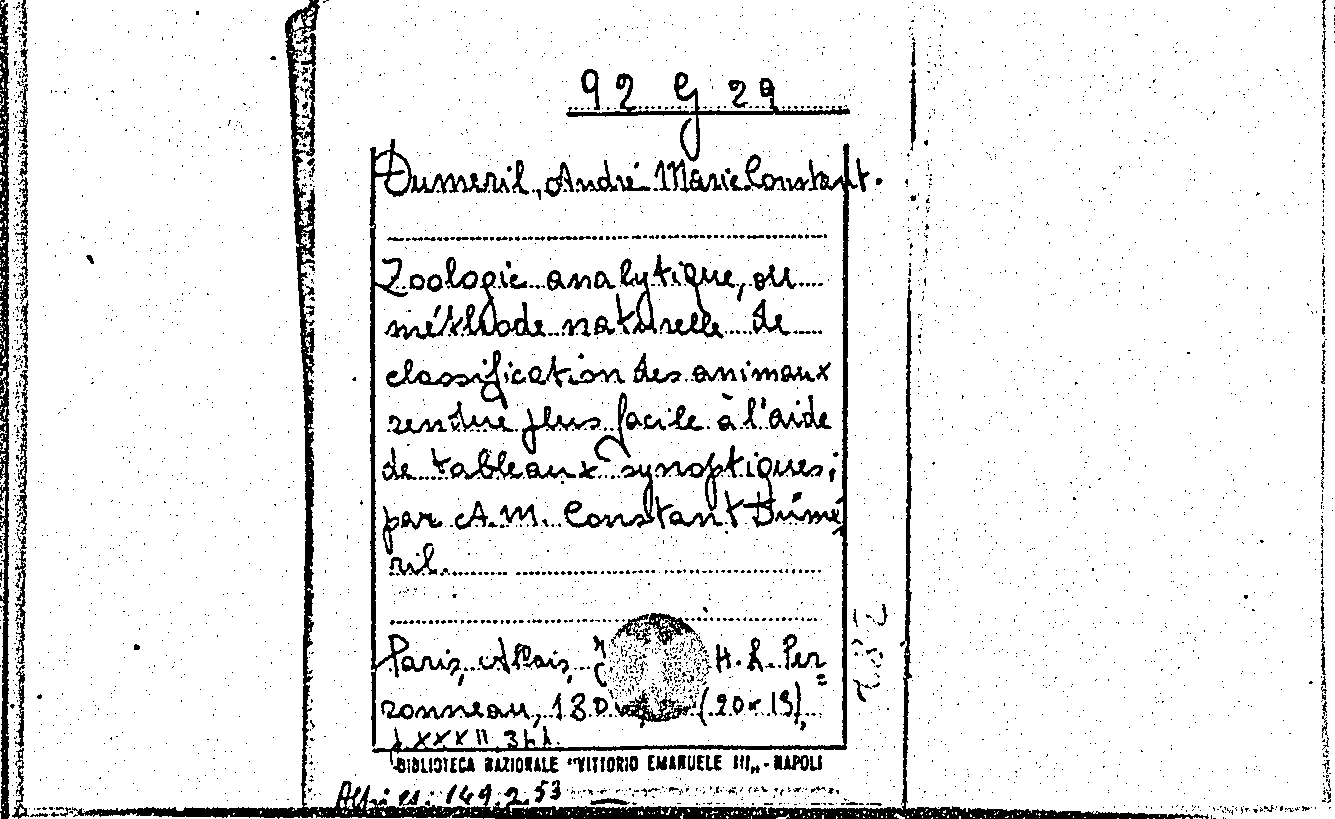 92 G 29
Dumeril, André Marie Constant.
Zoologie analytique, ou
méthode naturelle de
classification des animaux
rendue plus facile à l'aide
de tableaux synoptiques;
par A. M. Constant Dumé
ril.
Paris, Allais, H. L. Per=
ronneau, 180 (20×13),
p. XXXII. 344.
BIBLIOTECA NAZIONALE "VITTORIO EMANUELE III„ - NAPOLI
Altri es: 149. 2. 53